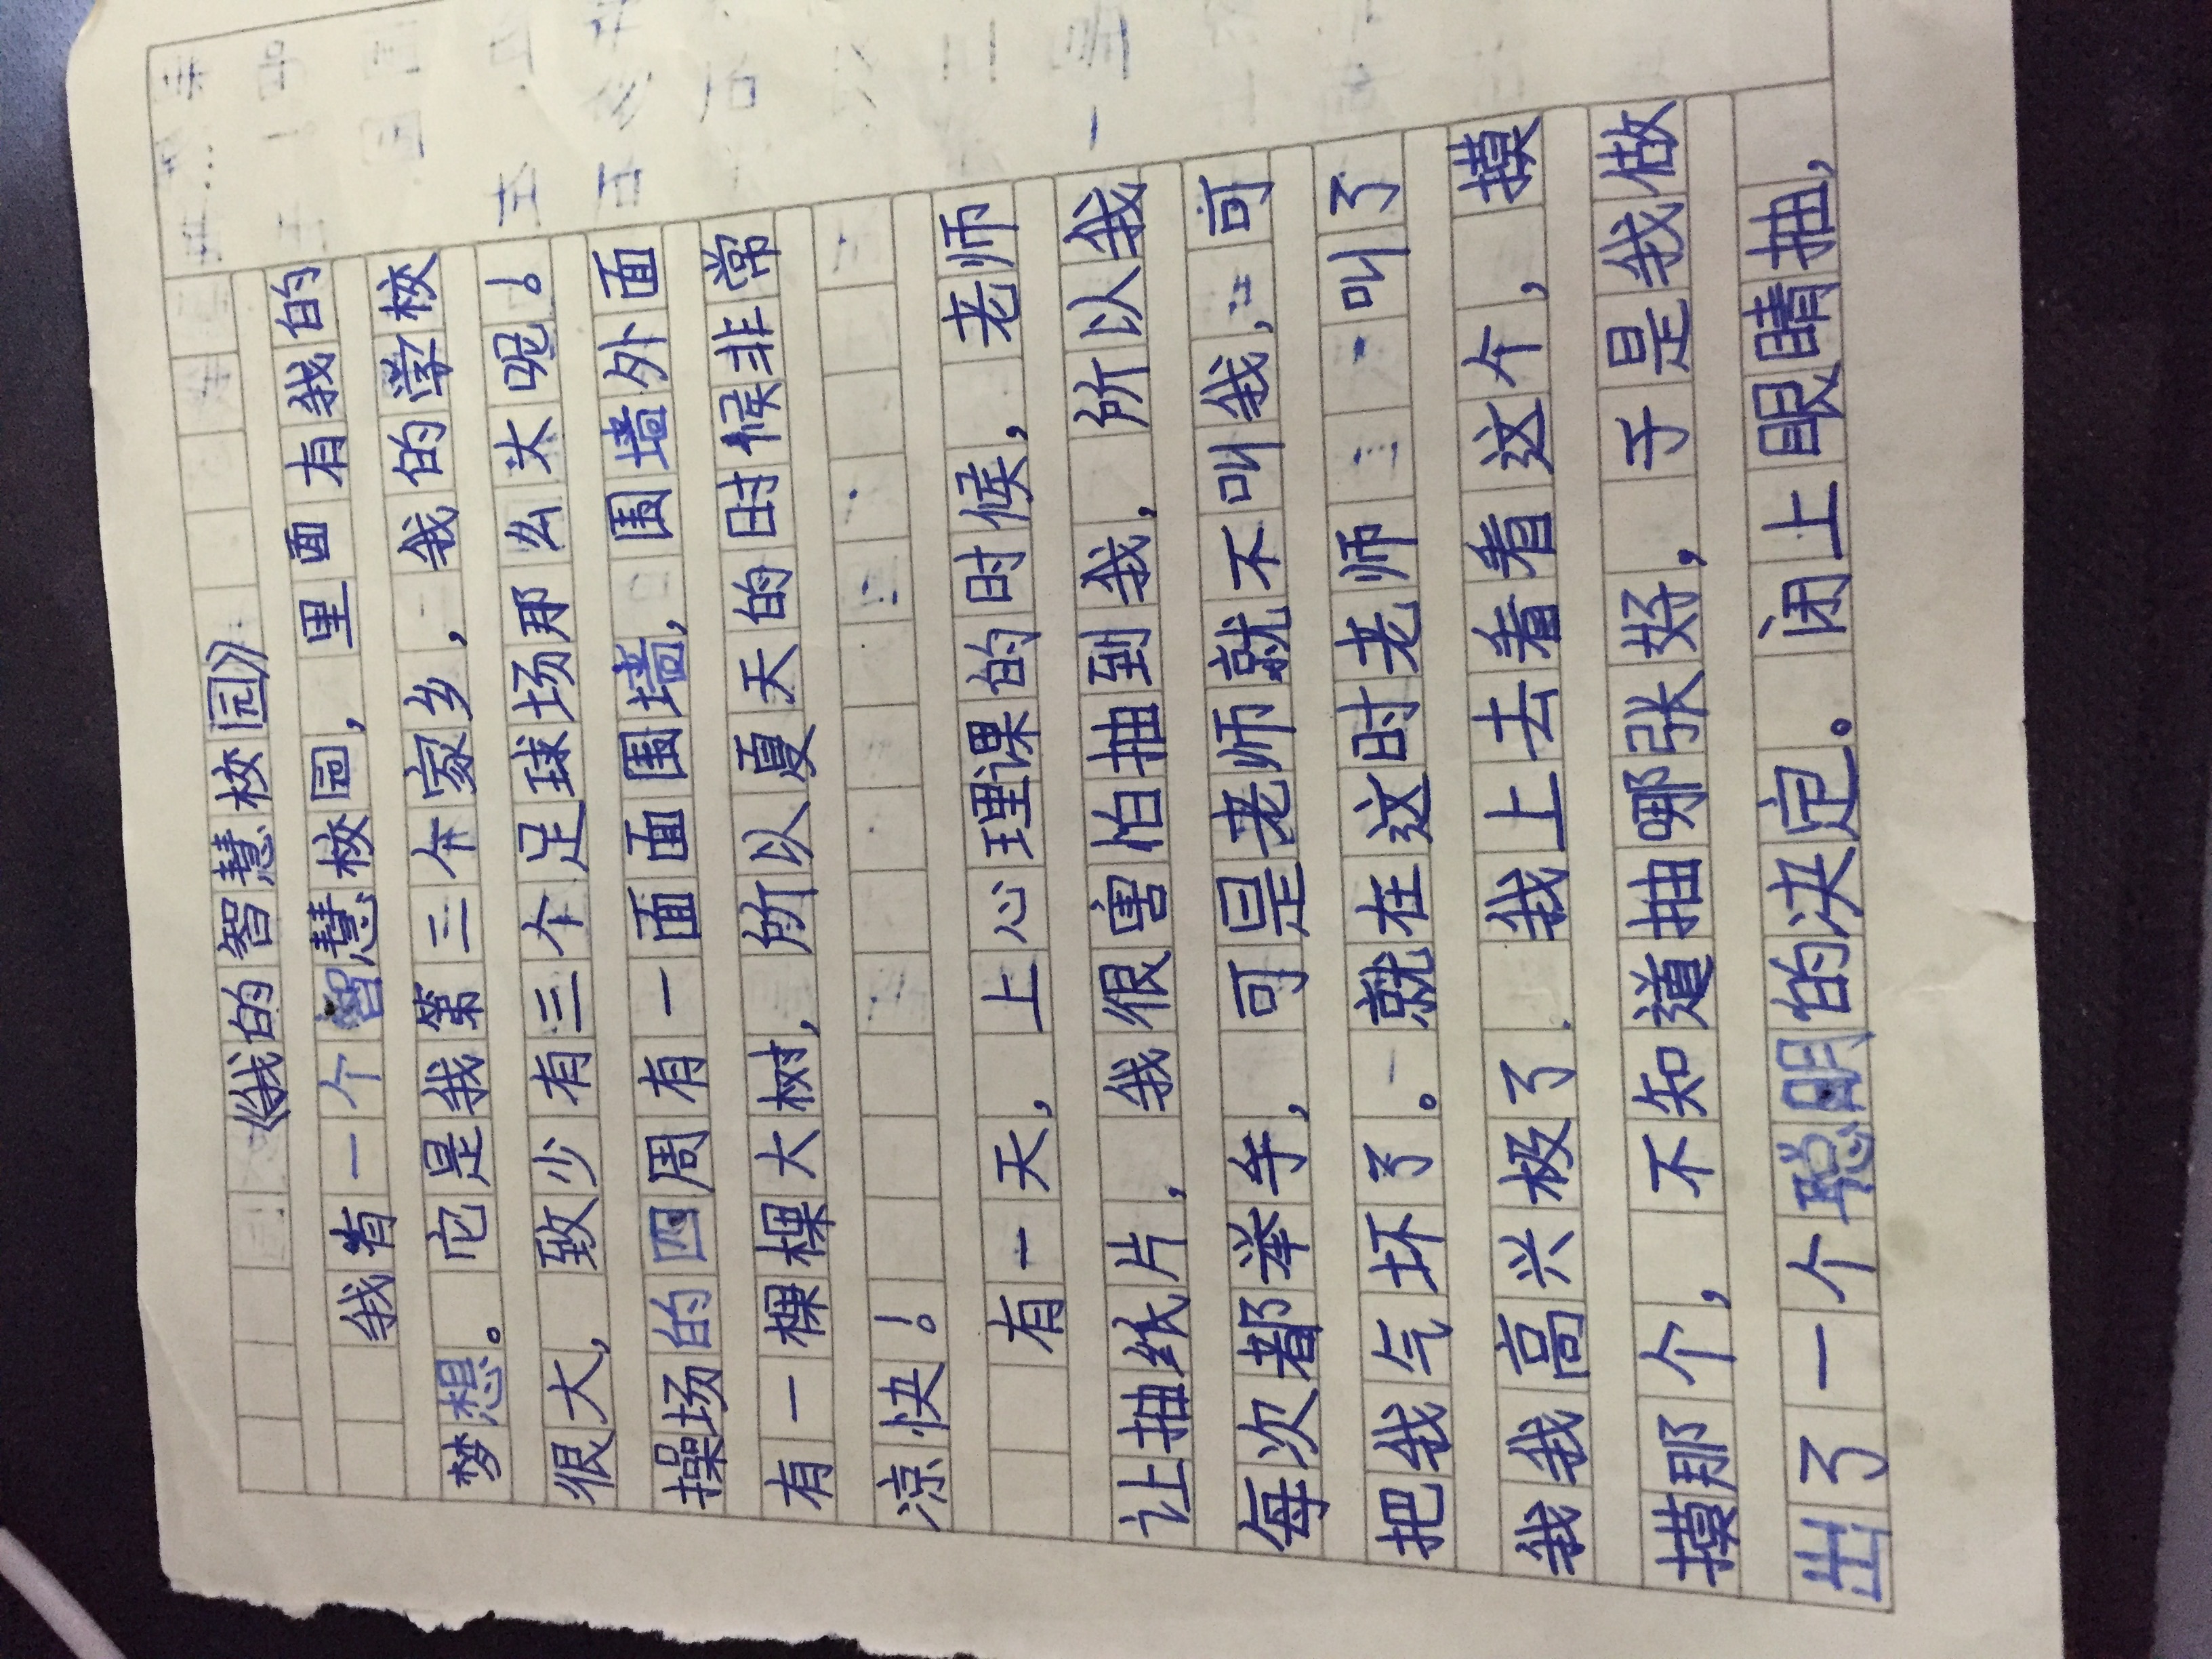 《我的智慧校园》
我有一个智慧校园，里面有我的
梦想。它是我第三个家乡，我的学校
很大，致少有三个足球场那么大呢！
操场的四周有一面面围墙，围墙外面
有一棵棵大树，所以夏天的时候非常
凉快！
有一天，上心理课的时候，老师
让抽纸片，我很害怕抽到我，所以我
每次都举手，可是老师就不叫我，可
把我气坏了。就在这时老师叫了
我我高兴极了我上去看看这个，摸
摸那个，不知道抽哪张好，于是我做
出了一个聪明的决定。闭上眼睛抽，